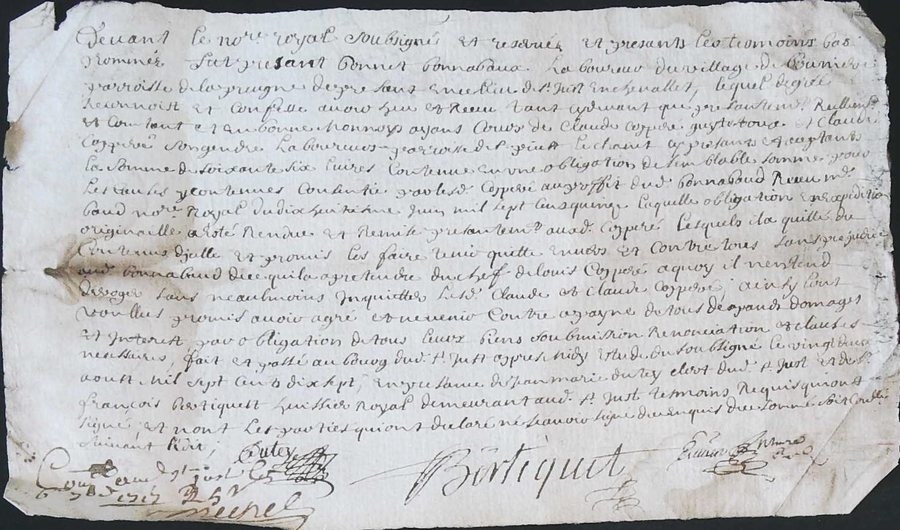 Devant le no.re royal soubsigné et reservée et presants les temoins bas
nommés fut présant bonnet bonnabaud laboureur du village de
parroisse de la prugne de present en ce lieu de St Just en chevallet, lequel de gré
reconnoist et confesse avoir heu et receu tant cydevant que presantemt. reellemt.
et contant et en bonne monnoye ayant cours de Claude copperé et Claude
copperé son gendre laboureurs parroisse de St priest presants et acceptants
la somme de soixante six livres contenue en une obligation de semblable somme pour
les causes y contenues consentie par lesd. copperé au proffit dud. bonnabaud receu me.
baud no.re royal du dixhuitiesme juin mil sept cens laquelle obligation en expedition
originaille a esté rendue et remise presantemt. auxd. copperé lesquels il a quitté du
contenu dicelle et promis les faire tenir quitte envers et contre tous sans prejudice
aud. bonnabaud de ce quil a a pretendre du chef de louis copperé a quoy il nentend
desroger sans neaulmoins inquietter lesd. Claude et Claude copperé; ainsy lont
voullu promis avoir agré et ne venir contre a payne de tous despands domages
et interest par obligation de tous leurs biens soubmission renonciation et clauses
necessaires, fait et passé au bourg dud. St Just appres midy estude du soubsigné le vingt deux
aoust mil sept cens dix sept; en presance de Jean marie dutey clerc dud. St Just et de Sr.
françois bertiquet huissier royal demeurant aud. St Just temoins requis qui ont
signé et non les parties qui ont declaré ne sçavoir signer de ce enquis
suivant
Dutey
Bertiquet
Con.llé St Just
1717